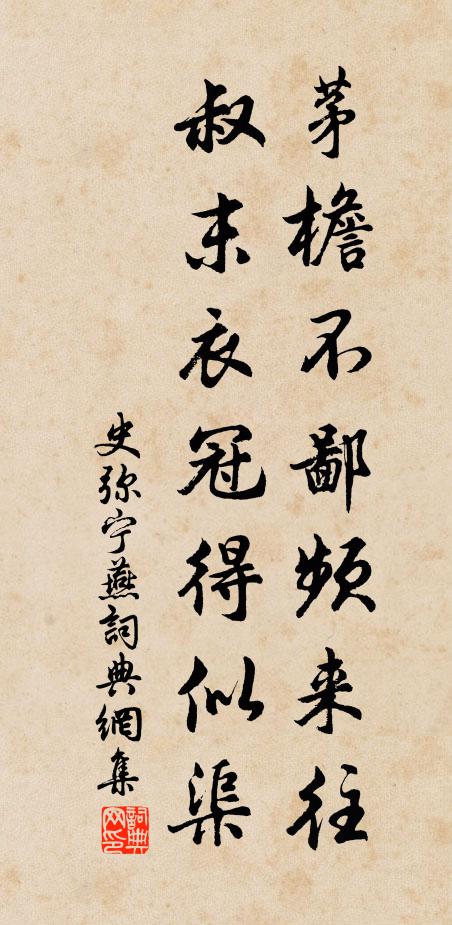 茅檐不鄙频来往
叔末衣冠得似渠
史弥宁燕詞典網集
詞典网印